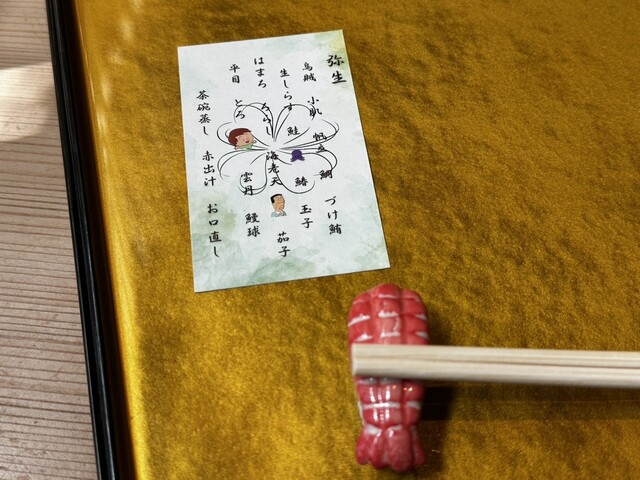 弥生
烏賊
小肌
帆立
鯛
づけ鮪
生しらす
鮭
鰆
玉子
はまぐろ
ちらし
海老天
茄子
平目
とろ
雲丹
鰻球
茶碗蒸し
赤出汁
お口直し